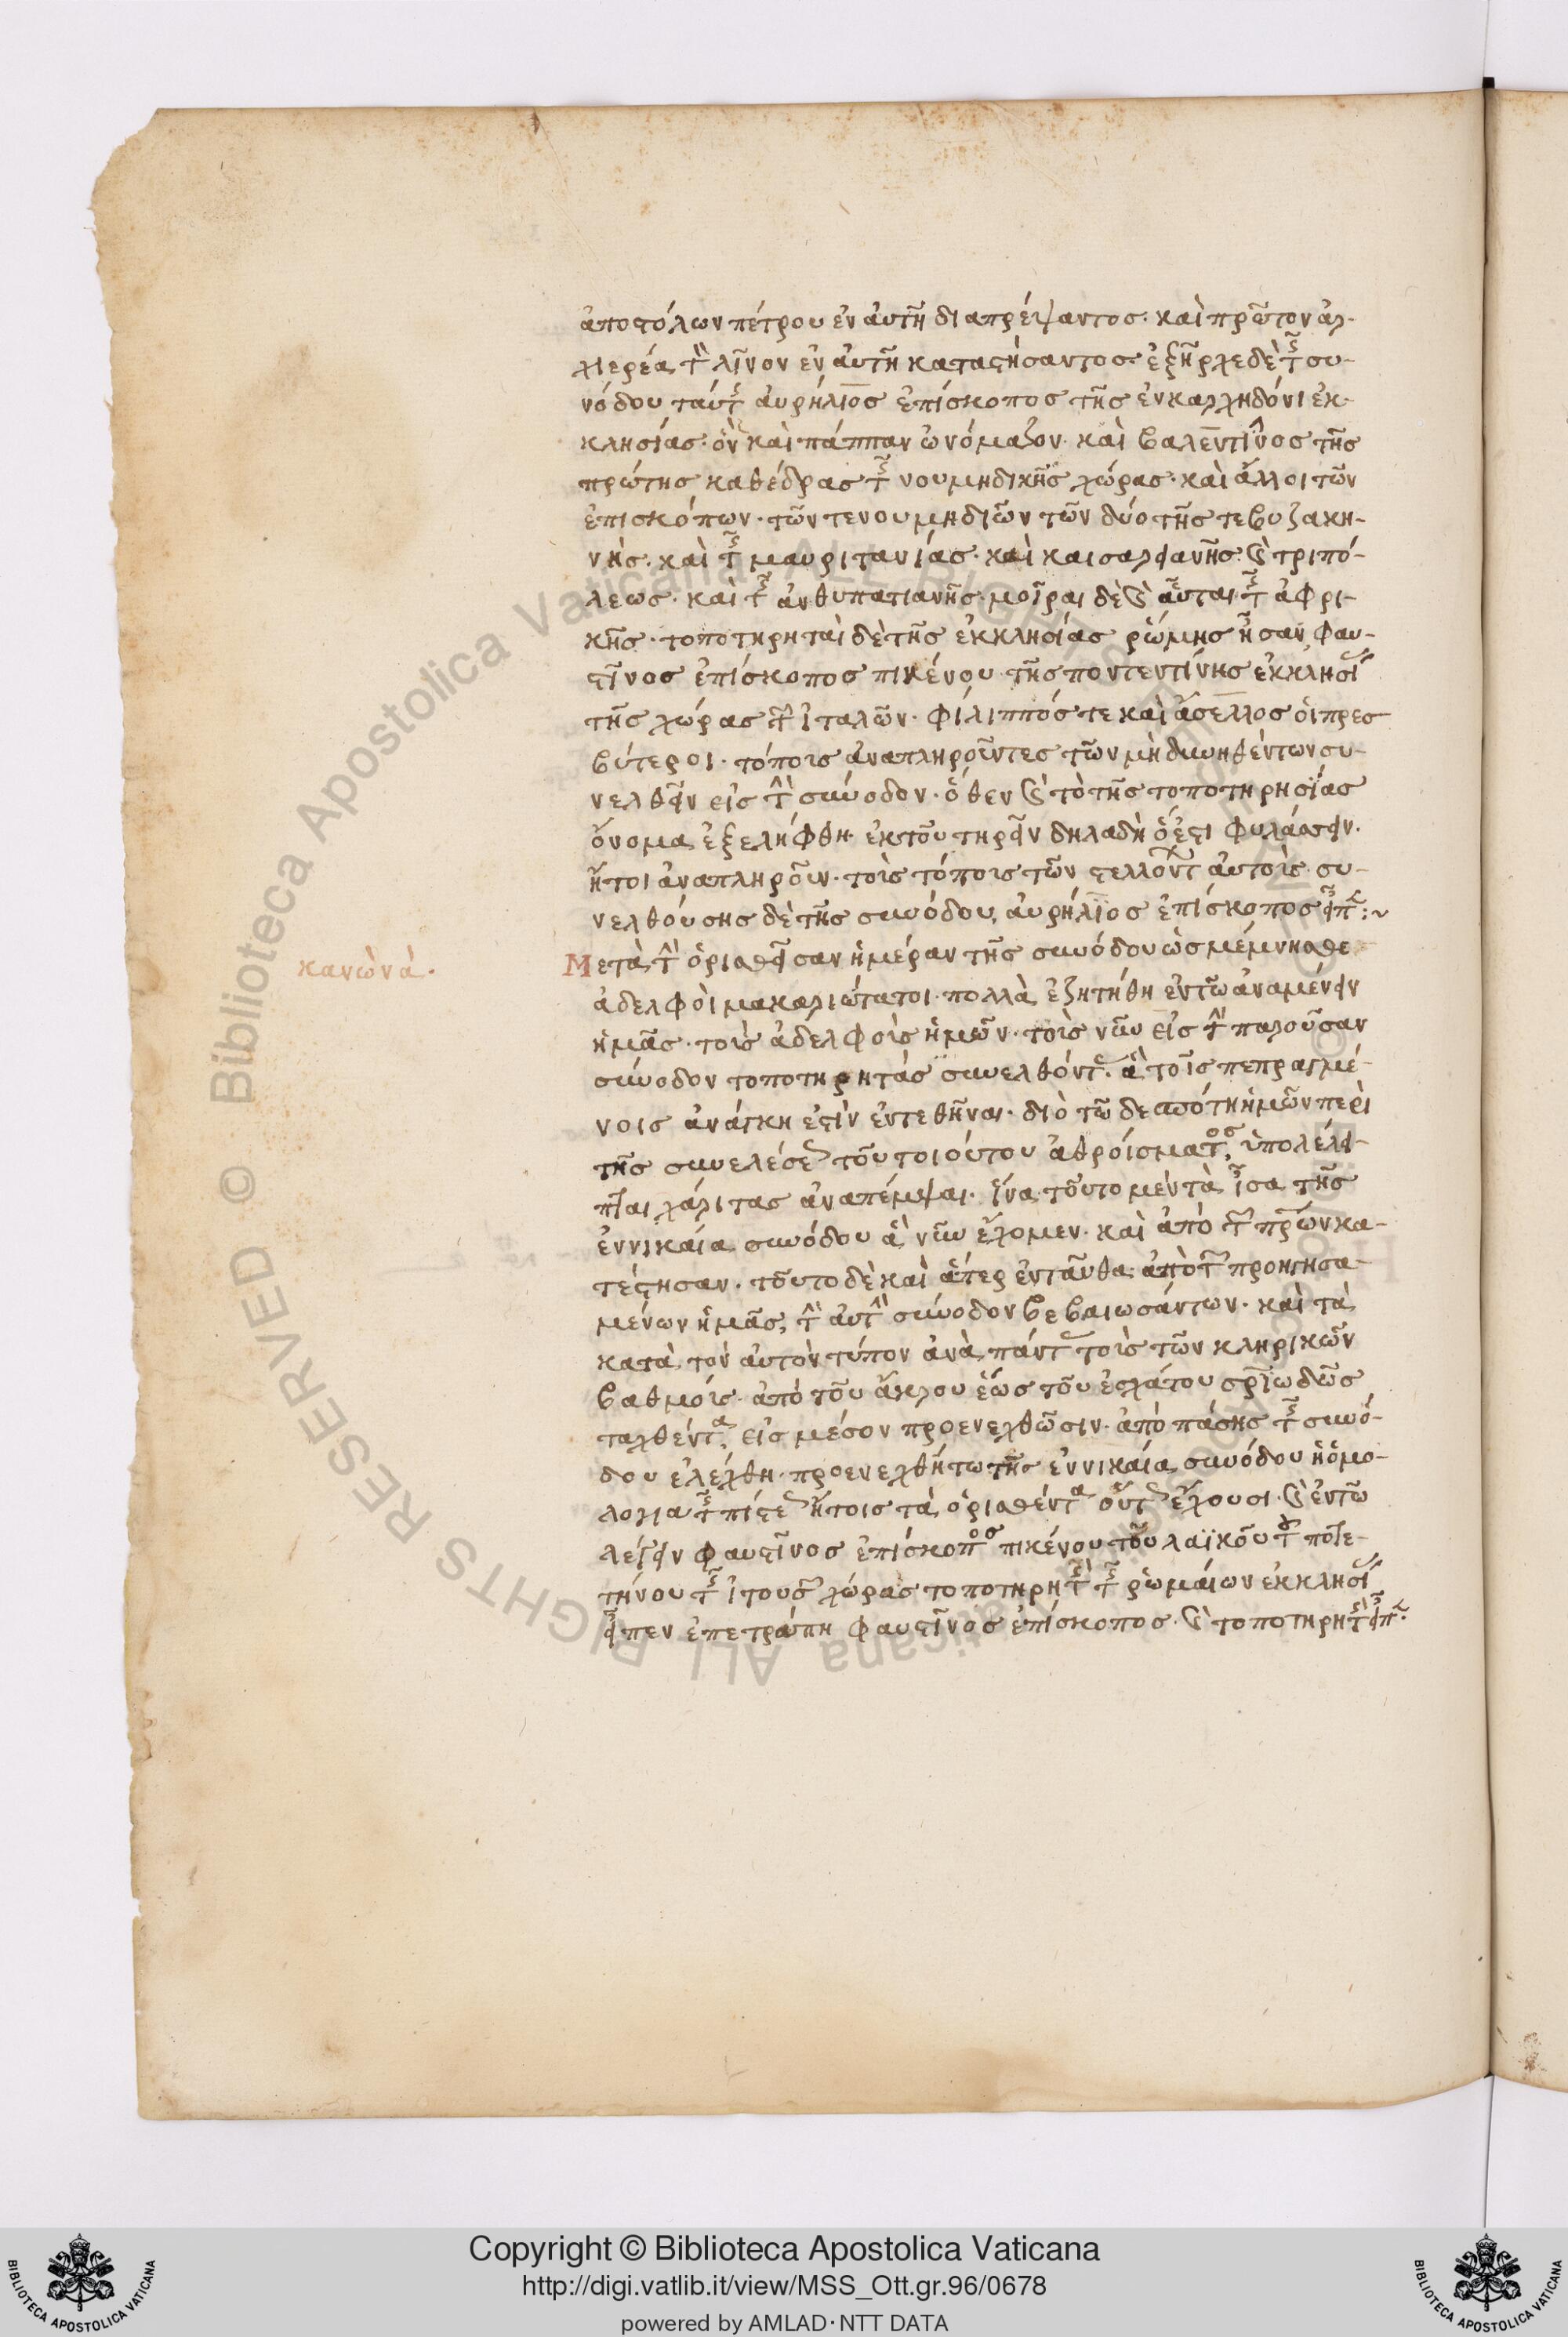 ἀποστόλων πέτρου ἐν αὐτῆ διαπρέψαντος· καὶ πρῶτον ἀρ-
χιερέα τὸν λῖνον ἐν αὐτῆ καταστήσαντος· ἐξῆρχε δὲ τῆς συ-
νόδου ταύτης αὐρήλιος ἐπίσκοπος τῆς ἐν καλχηδόνι ἐκ-
κλησίας· ὃν καὶ πάππαν ὠνόμαζον· καὶ βαλεντῖνος τῆς
πρώτης καθέδρας τῆς νουμηδικῆς χώρας· καὶ ἄλλοι τῶν
ἐπισκόπων· τῶν τε νουμηδιῶν τῶν δύο τῆς τε βυζακη-
νῆς· καὶ τῆς μαυριτανίας· καὶ καισαρειανῆς· καὶ τριπό-
λεως· καὶ τῆς ἀνθυπατιανῆς· μοῖραι δὲ καὶ αὗται τῆς ἀφρι-
κῆς· τοποτηρηταὶ δὲ τῆς ἐκκλησίας ῥώμης ἦσαν, φαυ-
στῖνος ἐπίσκοπος πικένου τῆς ποντεντίνης ἐκκλησίας
τῆς χώρας τῶν ἰταλῶν· φίλιππός τε καὶ ἄσελλος οἱ πρεσ
βύτεροι· τόποις ἀναπληροῦντες τῶν μὴ δυνηθέντων συ-
νελθεῖν εἰς τὴν σύνοδον· ὅθεν καὶ τὸ τῆς τοποτηρησίας
ὄνομα ἐξελήφθη· ἐκ τοῦ τηρεῖν δηλαδὴ ὅ ἐστι φυλάσσειν·
ἤτοι ἀναπληροῦν· τοὺς τόπους τῶν στελλόντων αὐτοὺς· συ-
νελθούσης δὲ τῆς συνόδου, αὐρήλιος ἐπίσκοπος εἶπεν:~
κανὼν ά.
Μετὰ τὴν ὁρισθεῖσαν ἡμέραν τῆς συνόδου ὡς μέμνησθε
ἀδελφοὶ μακαριώτατοι· πολλὰ ἐζητήθη ἐν τῶ ἀναμένειν
ἡμᾶς· τοὺς ἀδελφοὺς ἡμῶν· τοὺς νῦν εἰς τὴν παροῦσαν
σύνοδον τοποτηρητὰς συνελθόντας· ἃ τοῖς πεπραγμέ-
νοις ἀνάγκη ἐστὶν ἐντεθῆναι· διὸ τῶ δεσπότη ἡμῶν περὶ
τῆς συνελεύσεως τοῦ τοιούτου ἀθροίσματος, ὑπολέλει-
πται χάριτας ἀναπέμψαι· ἵνα τοῦτο μὲν τὰ ἶσα τῆς
ἐν νικαία συνόδου ἃ νῦν ἔχομεν· καὶ ἀπὸ τῶν πατέρων κα-
τέστησαν· τοῦτο δὲ καὶ ἅπερ ἐνταῦθα ἀπὸ τῶν προηγησα-
μένων ἡμᾶς, τὴν αὐτὴν σύνοδον βεβαιωσάντων· καὶ τὰ
κατὰ τὸν αὐτὸν τύπον ἀνὰ πάντας τοὺς τῶν κληρικῶν
βαθμοὺς· ἀπὸ τοῦ ἄκρου ἕως τοῦ ἐσχάτου σωτηριωδῶς
ταχθέντα, εἰς μέσον προενεχθῶσιν· ἀπὸ πάσης τῆς συνό-
δου ἐλέχθη· προενεχθήτω τῆς ἐν νικαία συνόδου ἡ ὁμο-
λογία τῆς πίστεως ἥτοις τὰ ὁρισθέντα οὕτως ἔχουσι· καὶ ἐν τῶ
λέγειν φαυστῖνος ἐπίσκοπος πικένου τοῦ λαϊκοῦ τοῦ ποτε-
τήνου τῆς ἰτούς χώρας τοποτηρητὴς τῆς ῥωμαίων ἐκκλησίας
εἶπεν ἐπετράπη φαυστῖνος ἐπίσκοπος· καὶ τοποτηρητὴς εἶπεν·